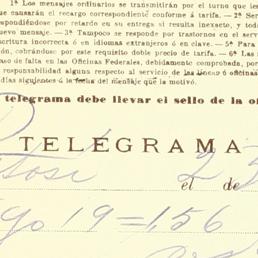 1ª Los mensajes ordinarios se transmitirán por el turno que les
que causarán el recargo correspondiente conforme á tarifa. — 2ª Ser
spondiéndose por retardo en su entrega ni resulta inexacto, y todo
uevo mensaje. — 3ª Tampoco se responde por trastornos en el serv
scritura incorrecta ó en idiomas extranjeros ó en clave. — 5ª Para
ión, cobrándose: por este requisito doble precio de tarifa. — 6ª Las
aso de falta en las Oficinas Federales, debidamente comprobada, por
responsabilidad alguna respecto al servicio de las líneas ú oficinas
días siguientes á la fecha del mensaje que la motivó.
telegrama debe llevar el sello de la of
TELÉGRAMA
Potosí el 23 de
go 19=156